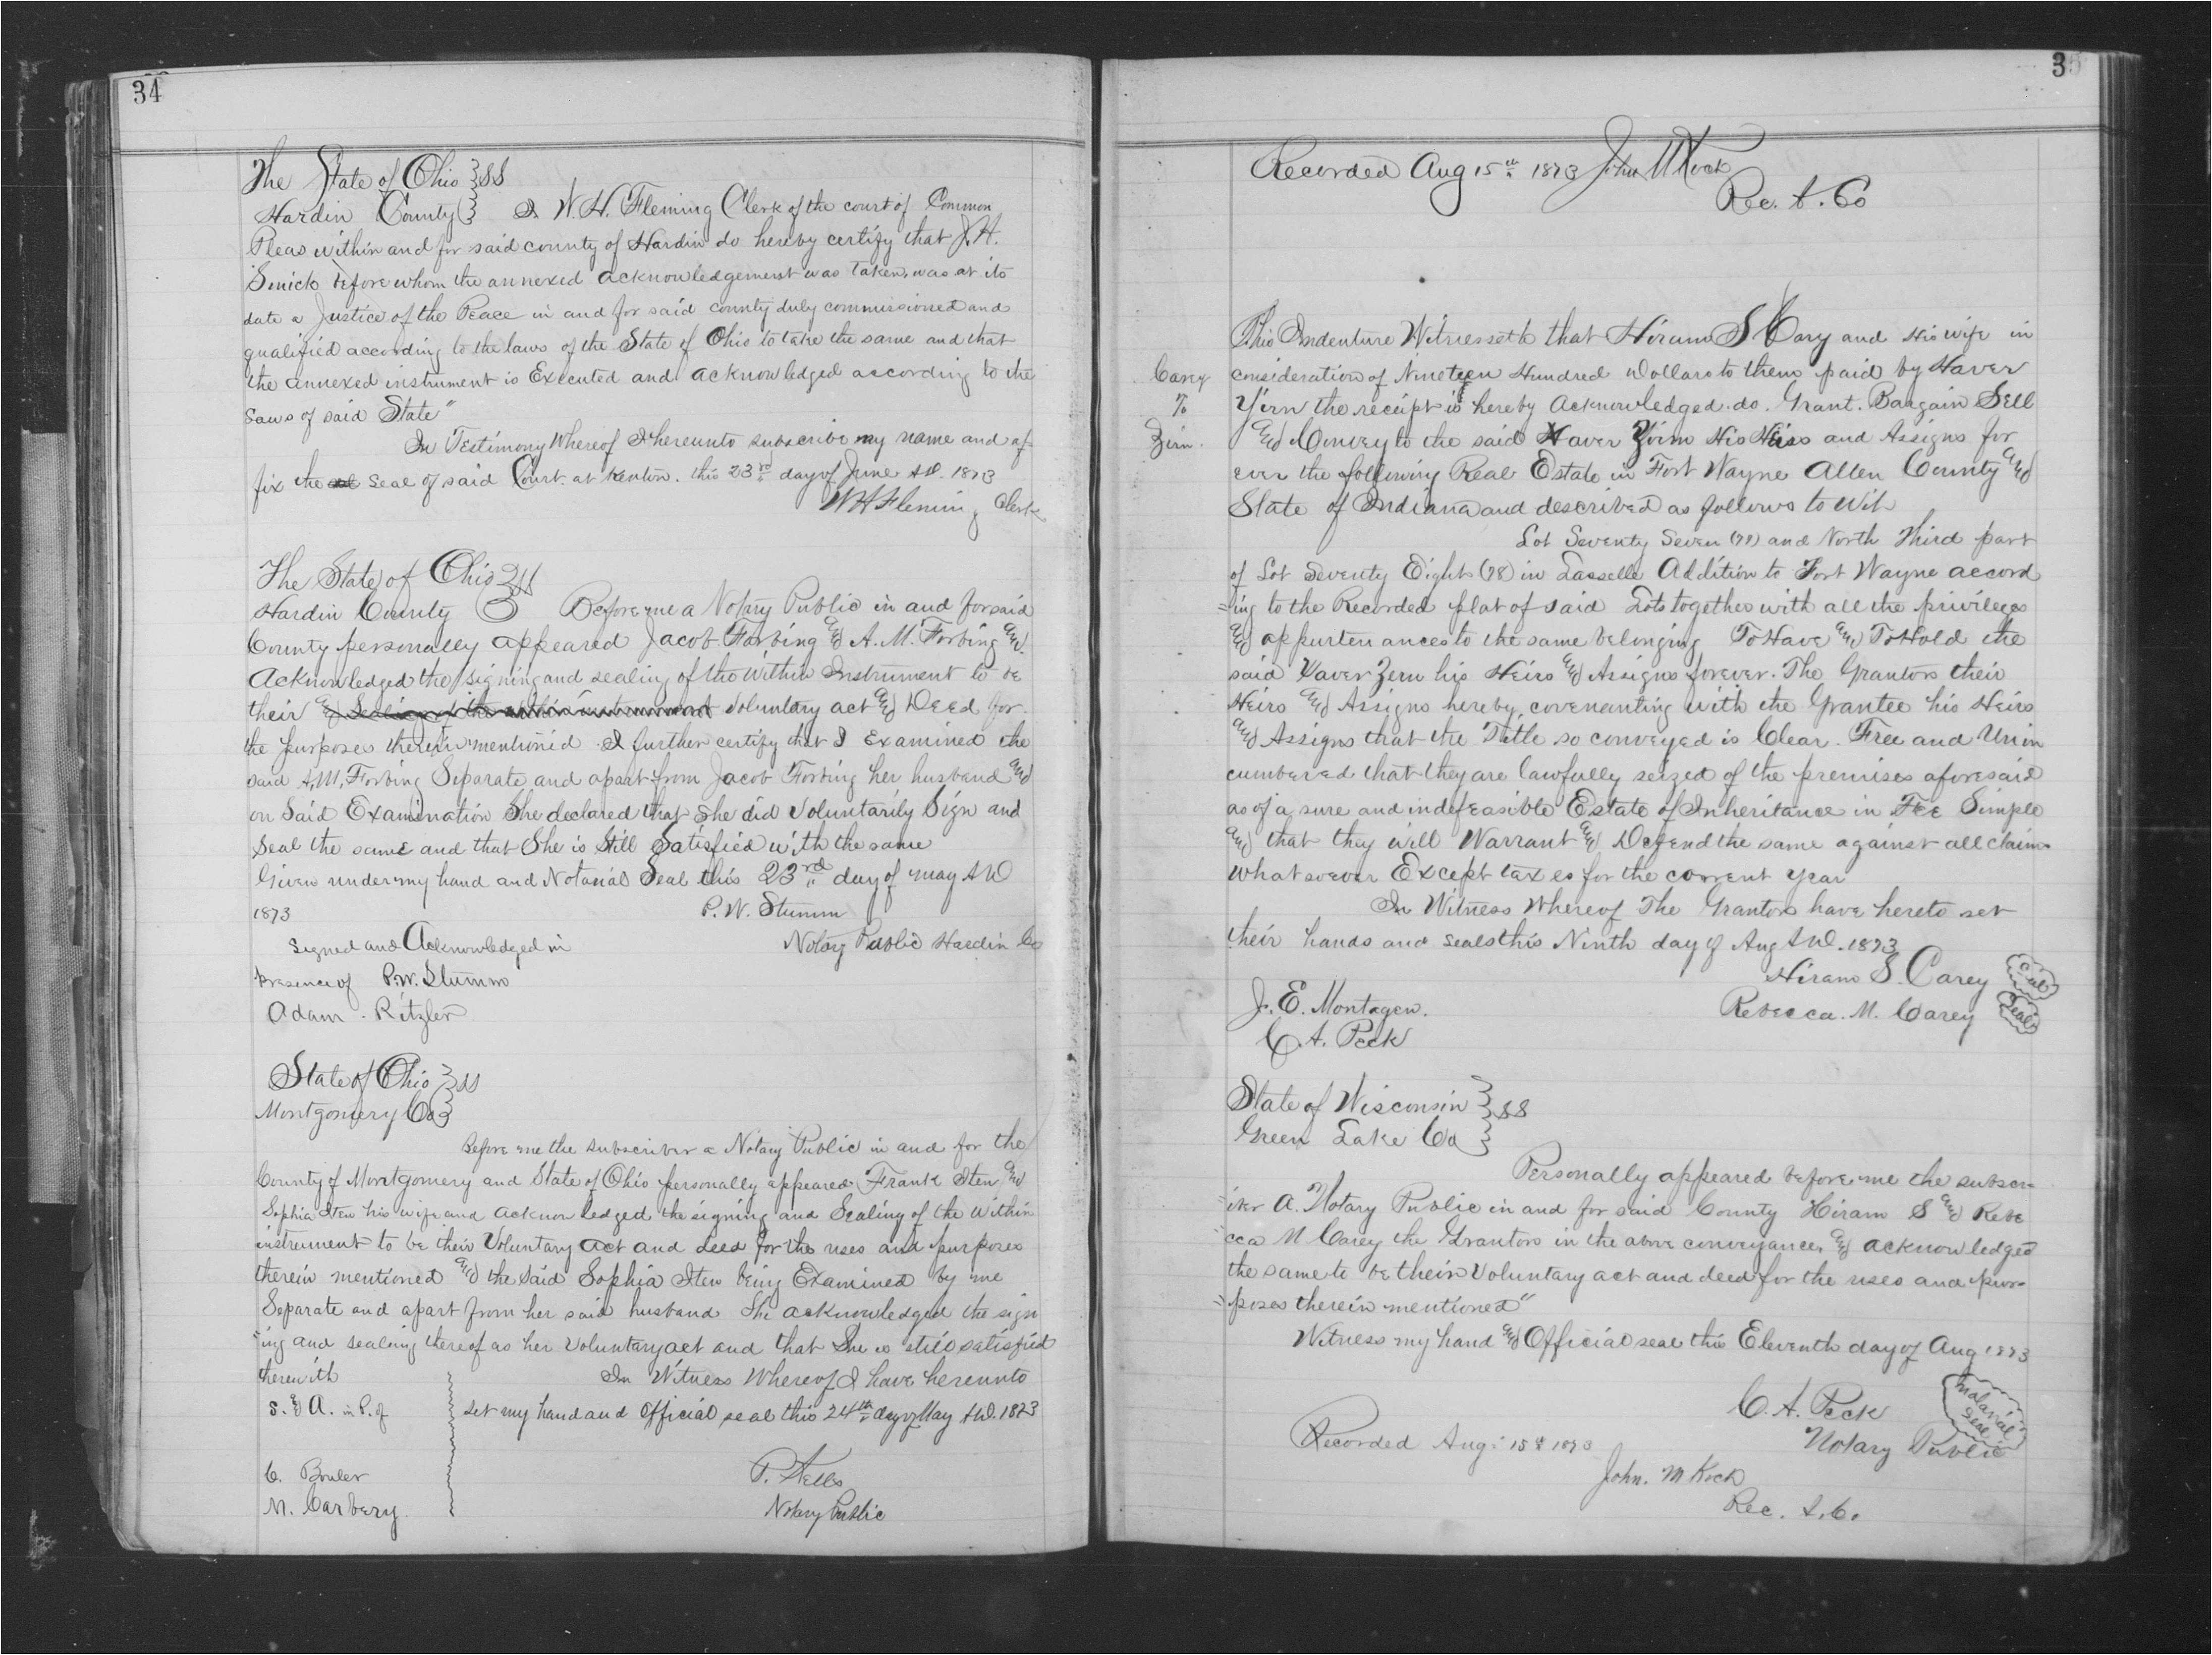 34
The State of Ohio } SS
Hardin County } I W. H. Fleming Clerk of the court of Common
Pleas within and for said county of Hardin do hereby certify that J. H.
before whom the annexed acknowledgement was taken, was at its
date a Justice of the Peace in and for said county duly commissioned and
qualified according to the laws of the State of Ohio to take the same and that
the annexed instrument is Executed and acknowledged according to the
Laws of said State"
In Testimony Whereof I hereunto subscribe my name and af-
fix the seal of said Court. at Kenton. this 23rd day of June A.D. 1873
W H Fleming Clerk
The State of Ohio } SS
Hardin County } Before me a Notary Public in and for said
County personally appeared Jacob Forbing and A. M. Forbing and
Acknowledged the signing and sealing of the within Instrument to be
their and Sealing of the within instrument voluntary act and Deed for
the purposes therein mentioned. I further certify that I Examined the
said A, M, Forbing Separate and apart from Jacob Forbing her husband and
on Said Examination She declared that she did Voluntarily Sign and
Seal the same and that She is Still Satisfied with the same
Given under my hand and Notarial Seal this 23rd day of may A D
1873 P. W. Stumm
Signed and Acknowledged in Notary Public Hardin Co
Presence of P. W. Stumm
Adam . Ritzler
State of Ohio } SS
Montgomery Co }
Before me the subscriber a Notary Public in and for the
County of Montgomery and State of Ohio personally appeared Frank Iten and
Sophia Iten his wife and acknowledged the signing and Sealing of the within
instrument to be their Voluntary act and deed for the uses and purposes
therein mentioned and the said Sophia Iten being Examined by me
Separate and apart from her said husband She acknowledged the sign
"ing and sealing thereof as her Voluntary act and that She is still satisfied
therewith In Witness Whereof I have hereunto
S. & A. in P. of set my hand and Official seal this 24th day of May A.D. 1873
C.
M. Carbery. Notary Public
35
Recorded Aug 15th 1873 John M Koch
Rec. A. Co
This Indenture Witnesseth that Hiram S Cary and His wife in
Carey consideration of Nineteen Hundred Dollars to them paid by Xaver
To Yirn the receipt is hereby Acknowledged. do. Grant. Bargain Sell
Zirn. and Convey to the said Xaver Zirn His Heirs and Assigns for
ever the following Real Estate in Fort Wayne Allen County and
State of Indiana and described as follows to Wit
Lot Seventy Seven (77) and North Third part
of Lot Seventy Eight (78) in Lasselle Addition to Fort Wayne accord
=ing to the Recorded plat of said Lots together with all the privileges
and appurtenances to the same belonging To Have and To Hold the
said Xaver Zern his Heirs and Assigns forever. The Grantors their
Heirs and Assigns hereby covenanting with the Grantee his Heirs
and Assigns that the Title so conveyed is Clear. Free and Unin
cumbered that they are lawfully seized of the premises aforesaid
as of a sure and indefeasible Estate of Inheritance in Fee Simple
and that they will Warrant and Defend the same against all claims
whatsoever Except taxes for the current year
In Witness Whereof The Grantors have hereto set
their hands and seals this Ninth day of Aug A.D. 1873
Hiram S. Carey Seal
J. E. Montagen. Rebecca. M. Carey Seal
C. A. Peck
State of Wisconsin } SS
Green Lake Co }
Personally appeared before me the subscr-
"iber A. Notary Public in and for said County Hiram S and Rebe
"cca M Carey the Grantors in the above conveyance, and acknowledged
the same to be their Voluntary act and deed for the uses and pur-
"poses therein mentioned"
Witness my hand and Official seal this Eleventh day of Aug 1873
C. A. Peck Notarial Seal
Recorded Aug. 15th 1873 Notary Public
John. M Koch
Rec. A. Co.